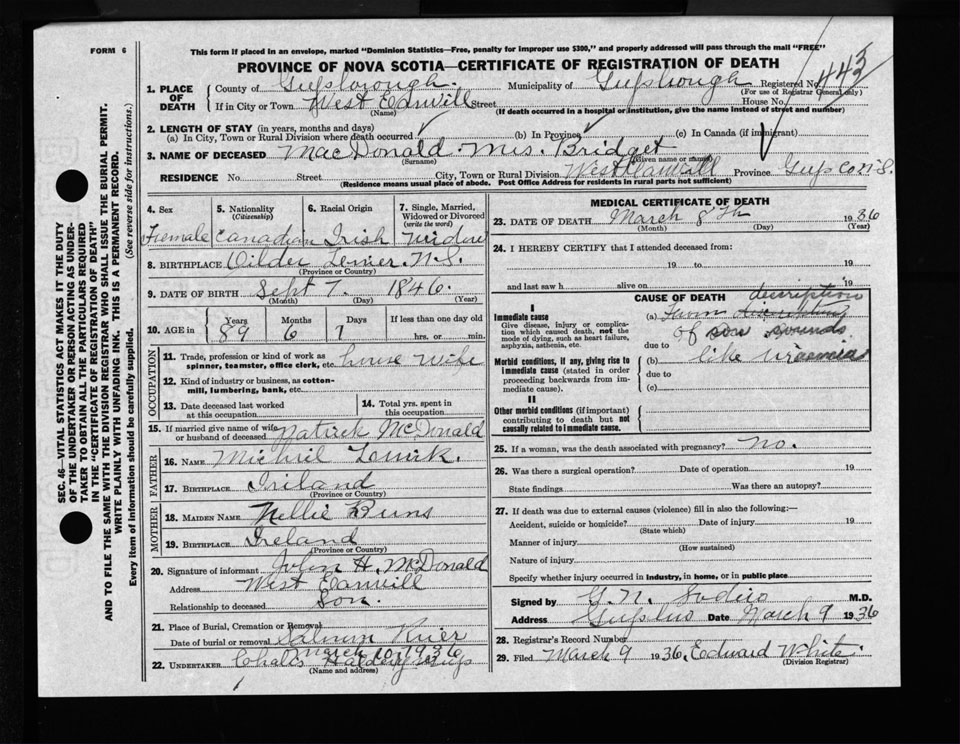 FORM 6
This form if placed in an envelope, marked "Dominion Statistics—Free, penalty for improper use $300," and properly addressed will pass through the mail "FREE"
PROVINCE OF NOVA SCOTIA—CERTIFICATE OF REGISTRATION OF DEATH
SEC. 46—VITAL STATISTICS ACT MAKES IT THE DUTY
OF THE UNDERTAKER OR PERSON ACTING AS UNDER-
TAKER TO OBTAIN ALL THE PARTICULARS REQUIRED
IN THE "CERTIFICATE OF REGISTRATION OF DEATH"
AND TO FILE THE SAME WITH THE DIVISION REGISTRAR WHO SHALL ISSUE THE BURIAL PERMIT.
WRITE PLAINLY WITH UNFADING INK. THIS IS A PERMANENT RECORD.
Every item of information should be carefully supplied. (See reverse side for instructions.)
1. PLACE OF DEATH
County of Guysborough Municipality of Guysborough Registered No. 443
(For use of Registrar General only)
If in City or Town West Street House No.
(Name) (If death occurred in a hospital or institution, give the name instead of street and number)
2. LENGTH OF STAY (in years, months and days)
(a) In City, Town or Rural Division where death occurred (b) In Province (c) In Canada (if immigrant)
3. NAME OF DECEASED MacDonald Mrs. Bridget
(Surname) (Given name or names)
RESIDENCE No. Street City, Town or Rural Division West Province Guys Co N.S.
(Residence means usual place of abode. Post Office Address for residents in rural parts not sufficient)
4. Sex 5. Nationality (Citizenship) 6. Racial Origin 7. Single, Married, Widowed or Divorced (write the word)
Female Canadian Irish widow
8. BIRTHPLACE N.S.
(Province or Country)
9. DATE OF BIRTH Sept 7. 1846.
(Month) (Day) (Year)
10. AGE in Years Months Days If less than one day old
89 6 1 hrs. or min.
OCCUPATION
11. Trade, profession or kind of work as spinner, teamster, office clerk, etc. house wife
12. Kind of industry or business, as cotton-mill, lumbering, bank, etc.
13. Date deceased last worked at this occupation
14. Total yrs. spent in this occupation
15. If married give name of wife or husband of deceased Patrick McDonald
FATHER
16. NAME
17. BIRTHPLACE Iriland
(Province or Country)
MOTHER
18. MAIDEN NAME Nellie Buns
19. BIRTHPLACE Ireland
(Province or Country)
20. Signature of informant John H. McDonald
Address West
Relationship to deceased Son.
21. Place of Burial, Cremation or Removal Salmon River
Date of burial or removal March 10. 1936
22. UNDERTAKER
(Name and address)
MEDICAL CERTIFICATE OF DEATH
23. DATE OF DEATH March 8th 1936
(Month) (Day) (Year)
24. I HEREBY CERTIFY that I attended deceased from:
19 to 19
and last saw h alive on 19
CAUSE OF DEATH
I
Immediate cause
Give disease, injury or complication which caused death, not the mode of dying, such as heart failure, asphyxia, asthenia, etc.
(a) From discription
discription
of son sounds
due to
Morbid conditions, if any, giving rise to immediate cause (stated in order proceeding backwards from immediate cause).
(b) like uraemia
due to
(c)
II
Other morbid conditions (if important) contributing to death but not causally related to I immediate cause.
25. If a woman, was the death associated with pregnancy? no.
26. Was there a surgical operation? Date of operation 19
State findings Was there an autopsy?
27. If death was due to external causes (violence) fill in also the following:—
Accident, suicide or homicide? Date of injury 19
(State which)
Manner of injury
(How sustained)
Nature of injury
Specify whether injury occurred in industry, in home, or in public place
Signed by M.D.
Address Date March 9 1936
28. Registrar's Record Number
29. Filed March 9 1936 Edward White.
(Division Registrar)